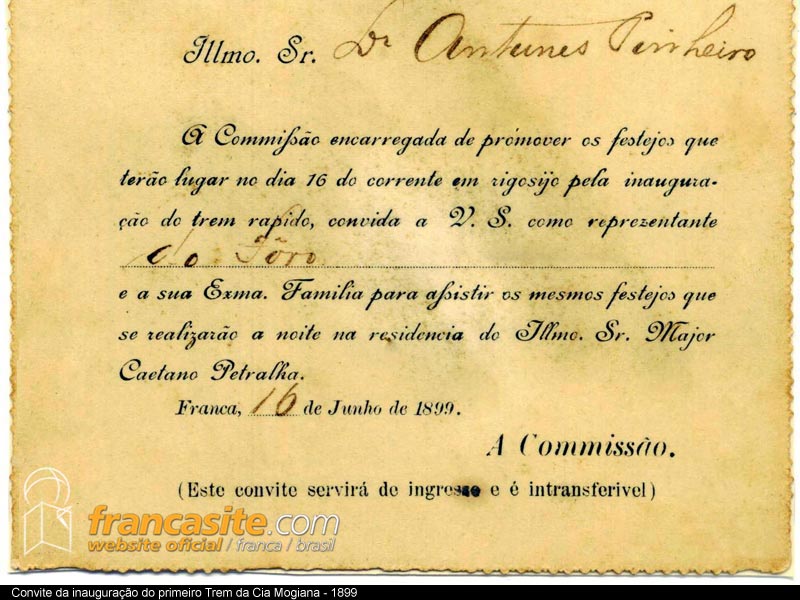 Illmo. Sr. Dr Antunes Pinheiro
A Commissão encarregada de promover os festejos que
terão lugar no dia 16 do corrente em rigosijo pela inaugura-
ção do trem rapido, convida a V. S. como reprezentante
do Fôro
e a sua Exma. Familia para assistir os mesmos festejos que
se realizarão a noite na residencia do Illmo. Sr. Major
Caetano Petralha.
Franca, 16 de Junho de 1899.
A Commissão.
(Este convite servirá de ingresso e é intransferivel)
francasite.com
website oficial / franca / brasil
Convite da inauguração do primeiro Trem da Cia Mogiana - 1899